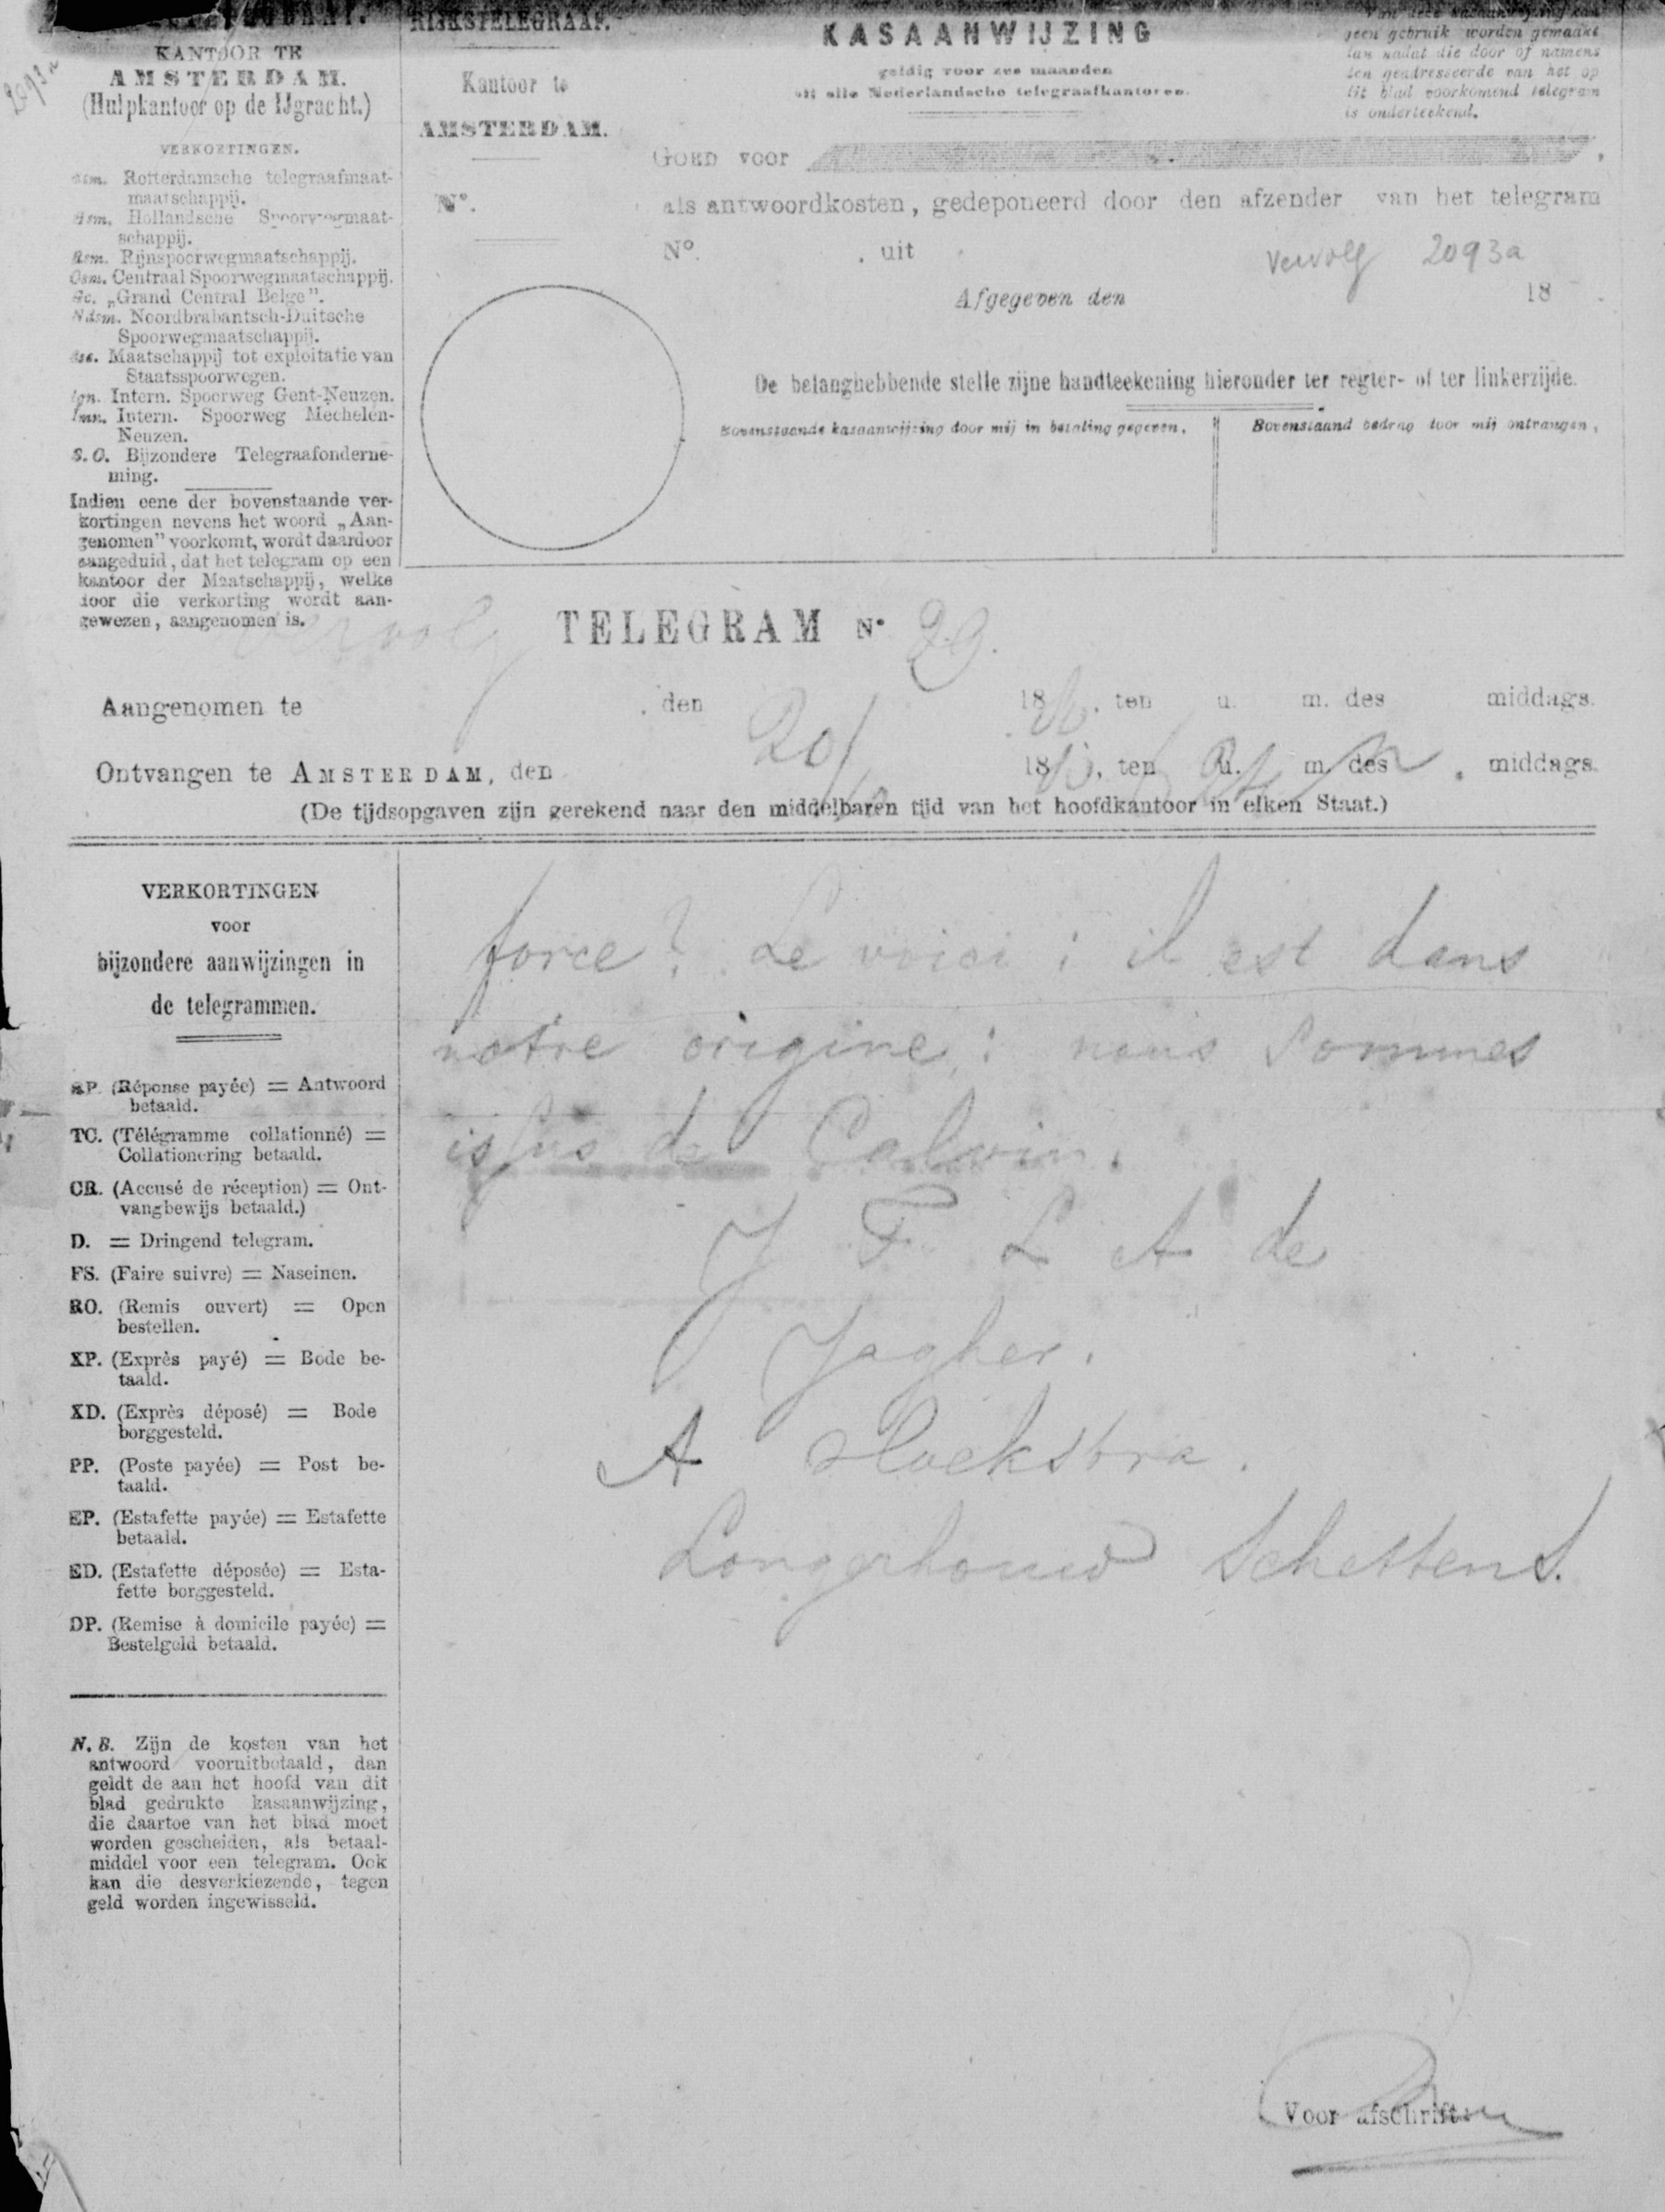 RIJKSTELEGRAAF.
KANTOOR TE
AMSTERDAM.
(Hulpkantoor op de IJgracht.)
2093a
VERKORTINGEN.
Rotterdamsche telegraafmaat-
maatschappij.
Hsm. Hollandsche Spoorwegmaat-
schappij.
Rsm. Rijnspoorwegmaatschappij.
Csm. Centraal Spoorwegmaatschappij.
Gc. „Grand Central Belge".
Ndsm. Noordbrabantsch-Duitsche
Spoorwegmaatschappij.
Maatschappij tot exploitatie van
Staatsspoorwegen.
Ign. Intern. Spoorweg Gent-Neuzen.
Imn. Intern. Spoorweg Mechelen-
Neuzen.
S.O. Bijzondere Telegraafonderne-
ming.
Indien eene der bovenstaande ver-
kortingen nevens het woord „Aan-
genomen" voorkomt, wordt daardoor
aangeduid, dat het telegram op een
kantoor der Maatschappij, welke
door die verkorting wordt aan-
gewezen, aangenomen is.
Kantoor te
AMSTERDAM.
N°.
KASAANWIJZING
geldig voor zes maanden
bij alle Nederlandsche telegraafkantoren.
Van deze kasaanwijzing kan
geen gebruik worden gemaakt
dan nadat die door of namens
den geadresseerde van het op
dit blad voorkomend telegram
is onderteekend.
GOED VOOR
als antwoordkosten, gedeponeerd door den afzender van het telegram
N°. uit
vervolg 2093a
Afgegeven den 18
De belanghebbende stelle zijne handteekening hieronder ter regter- of ter linkerzijde.
Bovenstaande kasaanwijzing door mij in betaling gegeven.
Bovenstaand bedrag door mij ontvangen,
vervolg
TELEGRAM N° 29.
Aangenomen te . den 1880, ten u. m. des middags.
Ontvangen te AMSTERDAM, den 20/10 1880, ten u. m. des middags.
(De tijdsopgaven zijn gerekend naar den middelbaren tijd van het hoofdkantoor in elken Staat.)
VERKORTINGEN
voor
bijzondere aanwijzingen in
de telegrammen.
RP. (Réponse payée) = Antwoord
betaald.
TC. (Télégramme collationné) =
Collationering betaald.
CR. (Accusé de réception) = Ont-
vangbewijs betaald.)
D. = Dringend telegram.
FS. (Faire suivre) = Naseinen.
RO. (Remis ouvert) = Open
bestellen.
XP. (Exprès payé) = Bode be-
taald.
XD. (Exprès déposé) = Bode
borggesteld.
PP. (Poste payée) = Post be-
taald.
EP. (Estafette payée) = Estafette
betaald.
ED. (Estafette déposée) = Esta-
fette borggesteld.
DP. (Remise à domicile payée) =
Bestelgeld betaald.
N.B. Zijn de kosten van het
antwoord vooruitbetaald, dan
geldt de aan het hoofd van dit
blad gedrukte kasaanwijzing,
die daartoe van het blad moet
worden gescheiden, als betaal-
middel voor een telegram. Ook
kan die desverkiezende, tegen
geld worden ingewisseld.
force? Le voici: il est dans
notre origine: nous sommes
issus de Calvin.
J F L A de
Jagher.
A Hoekstra.
Longerhouw Schettens.
Voor afschrift: